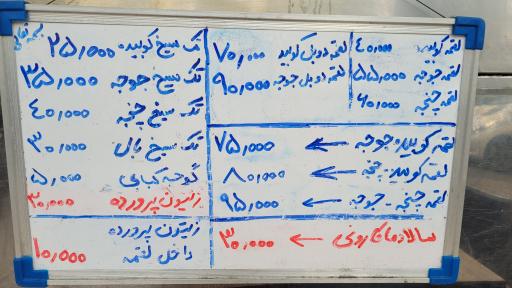 لقمه کوبیده: ۴۰,۰۰۰
لقمه جوجه ۵۵,۰۰۰
لقمه چنجه ۶۰,۰۰۰
لقمه دوبل کوبیده ۷۰,۰۰۰
لقمه دوبل جوجه ۹۰,۰۰۰
لقمه کوبیده: جوجه ← ۷۵,۰۰۰
لقمه کوبیده: چنجه ← ۸۰,۰۰۰
لقمه چنجه - جوجه ← ۹۵,۰۰۰
سالاد ماکارونی ← ۳۰,۰۰۰
بسمه تعالی
تک سیخ کوبیده: ۲۵,۰۰۰
تک سیخ جوجه ۳۵,۰۰۰
تک سیخ چنجه ۴۰,۰۰۰
تک سیخ بال ۳۰,۰۰۰
گوجه کبابی ۵,۰۰۰
زیتون پرورده ۳۰,۰۰۰
زیتون پرورده
داخل لقمه ۱۰,۰۰۰